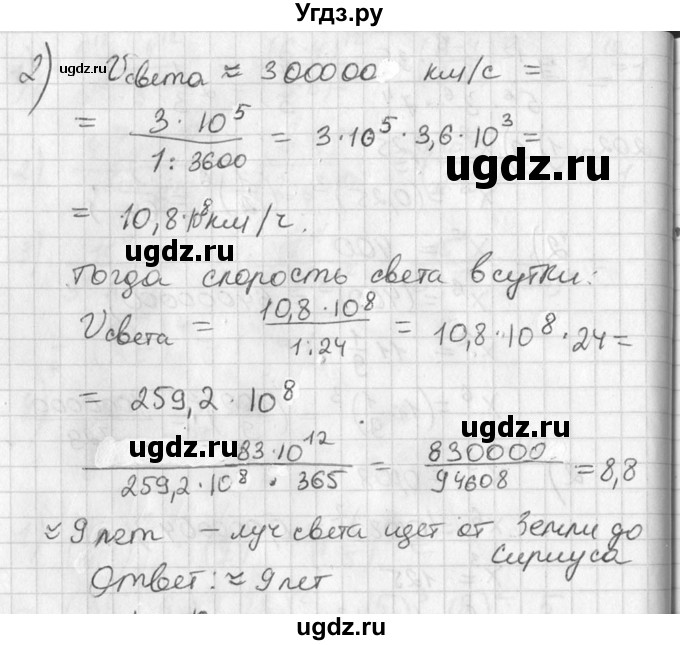 Угдз.ру
2) Vсвета ≈ 300000 км/с =
ugdz.ru
= 3·10^5 / 1:3600 = 3·10^5·3,6·10^3 =
ugdz.ru
= 10,8·10^8 км/ч.
ugdz.ru
Тогда скорость света в сутки:
Vсвета = 10,8·10^8 / 1:24 = 10,8·10^8·24 =
= 259,2·10^8
ugdz.ru ugdz.ru
83·10^12 / 259,2·10^8·365 = 830000 / 94608 = 8,8
≈ 9 лет – луч света идет от Земли до
Сириуса
Ответ: ≈ 9 лет
ugdz.ru
ugdz.ru